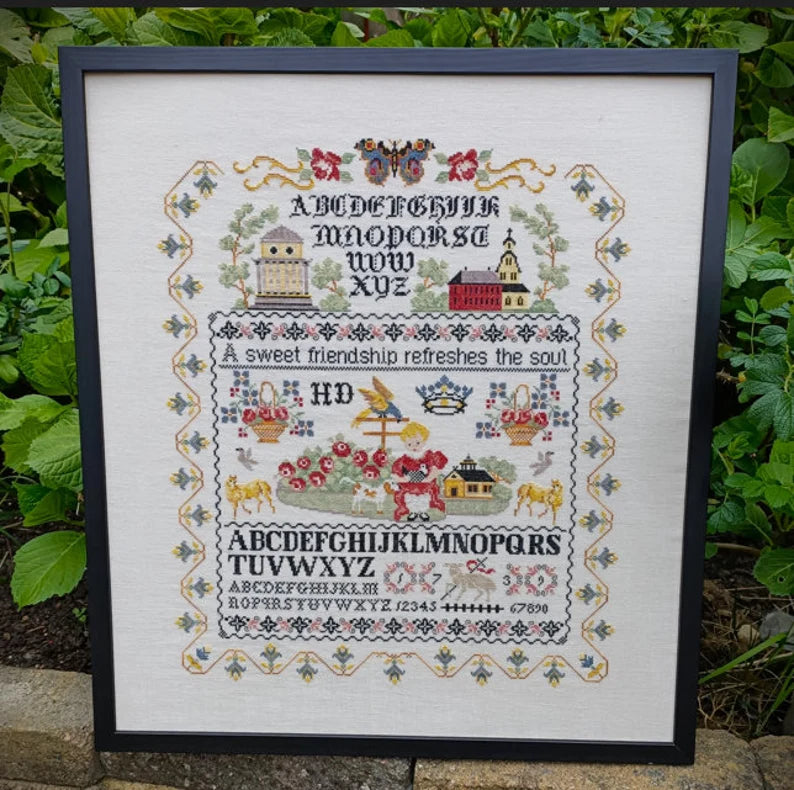 ABCDEFGHIJK
MNOPQRST
UVW
XYZ
A sweet friendship refreshes the soul
HD
ABCDEFGHIJKLMNOPQRS
TUVWXYZ
1 7 3 9
ABCDEFGHIJKLM
NOPQRSTUVWXYZ 12345 67890